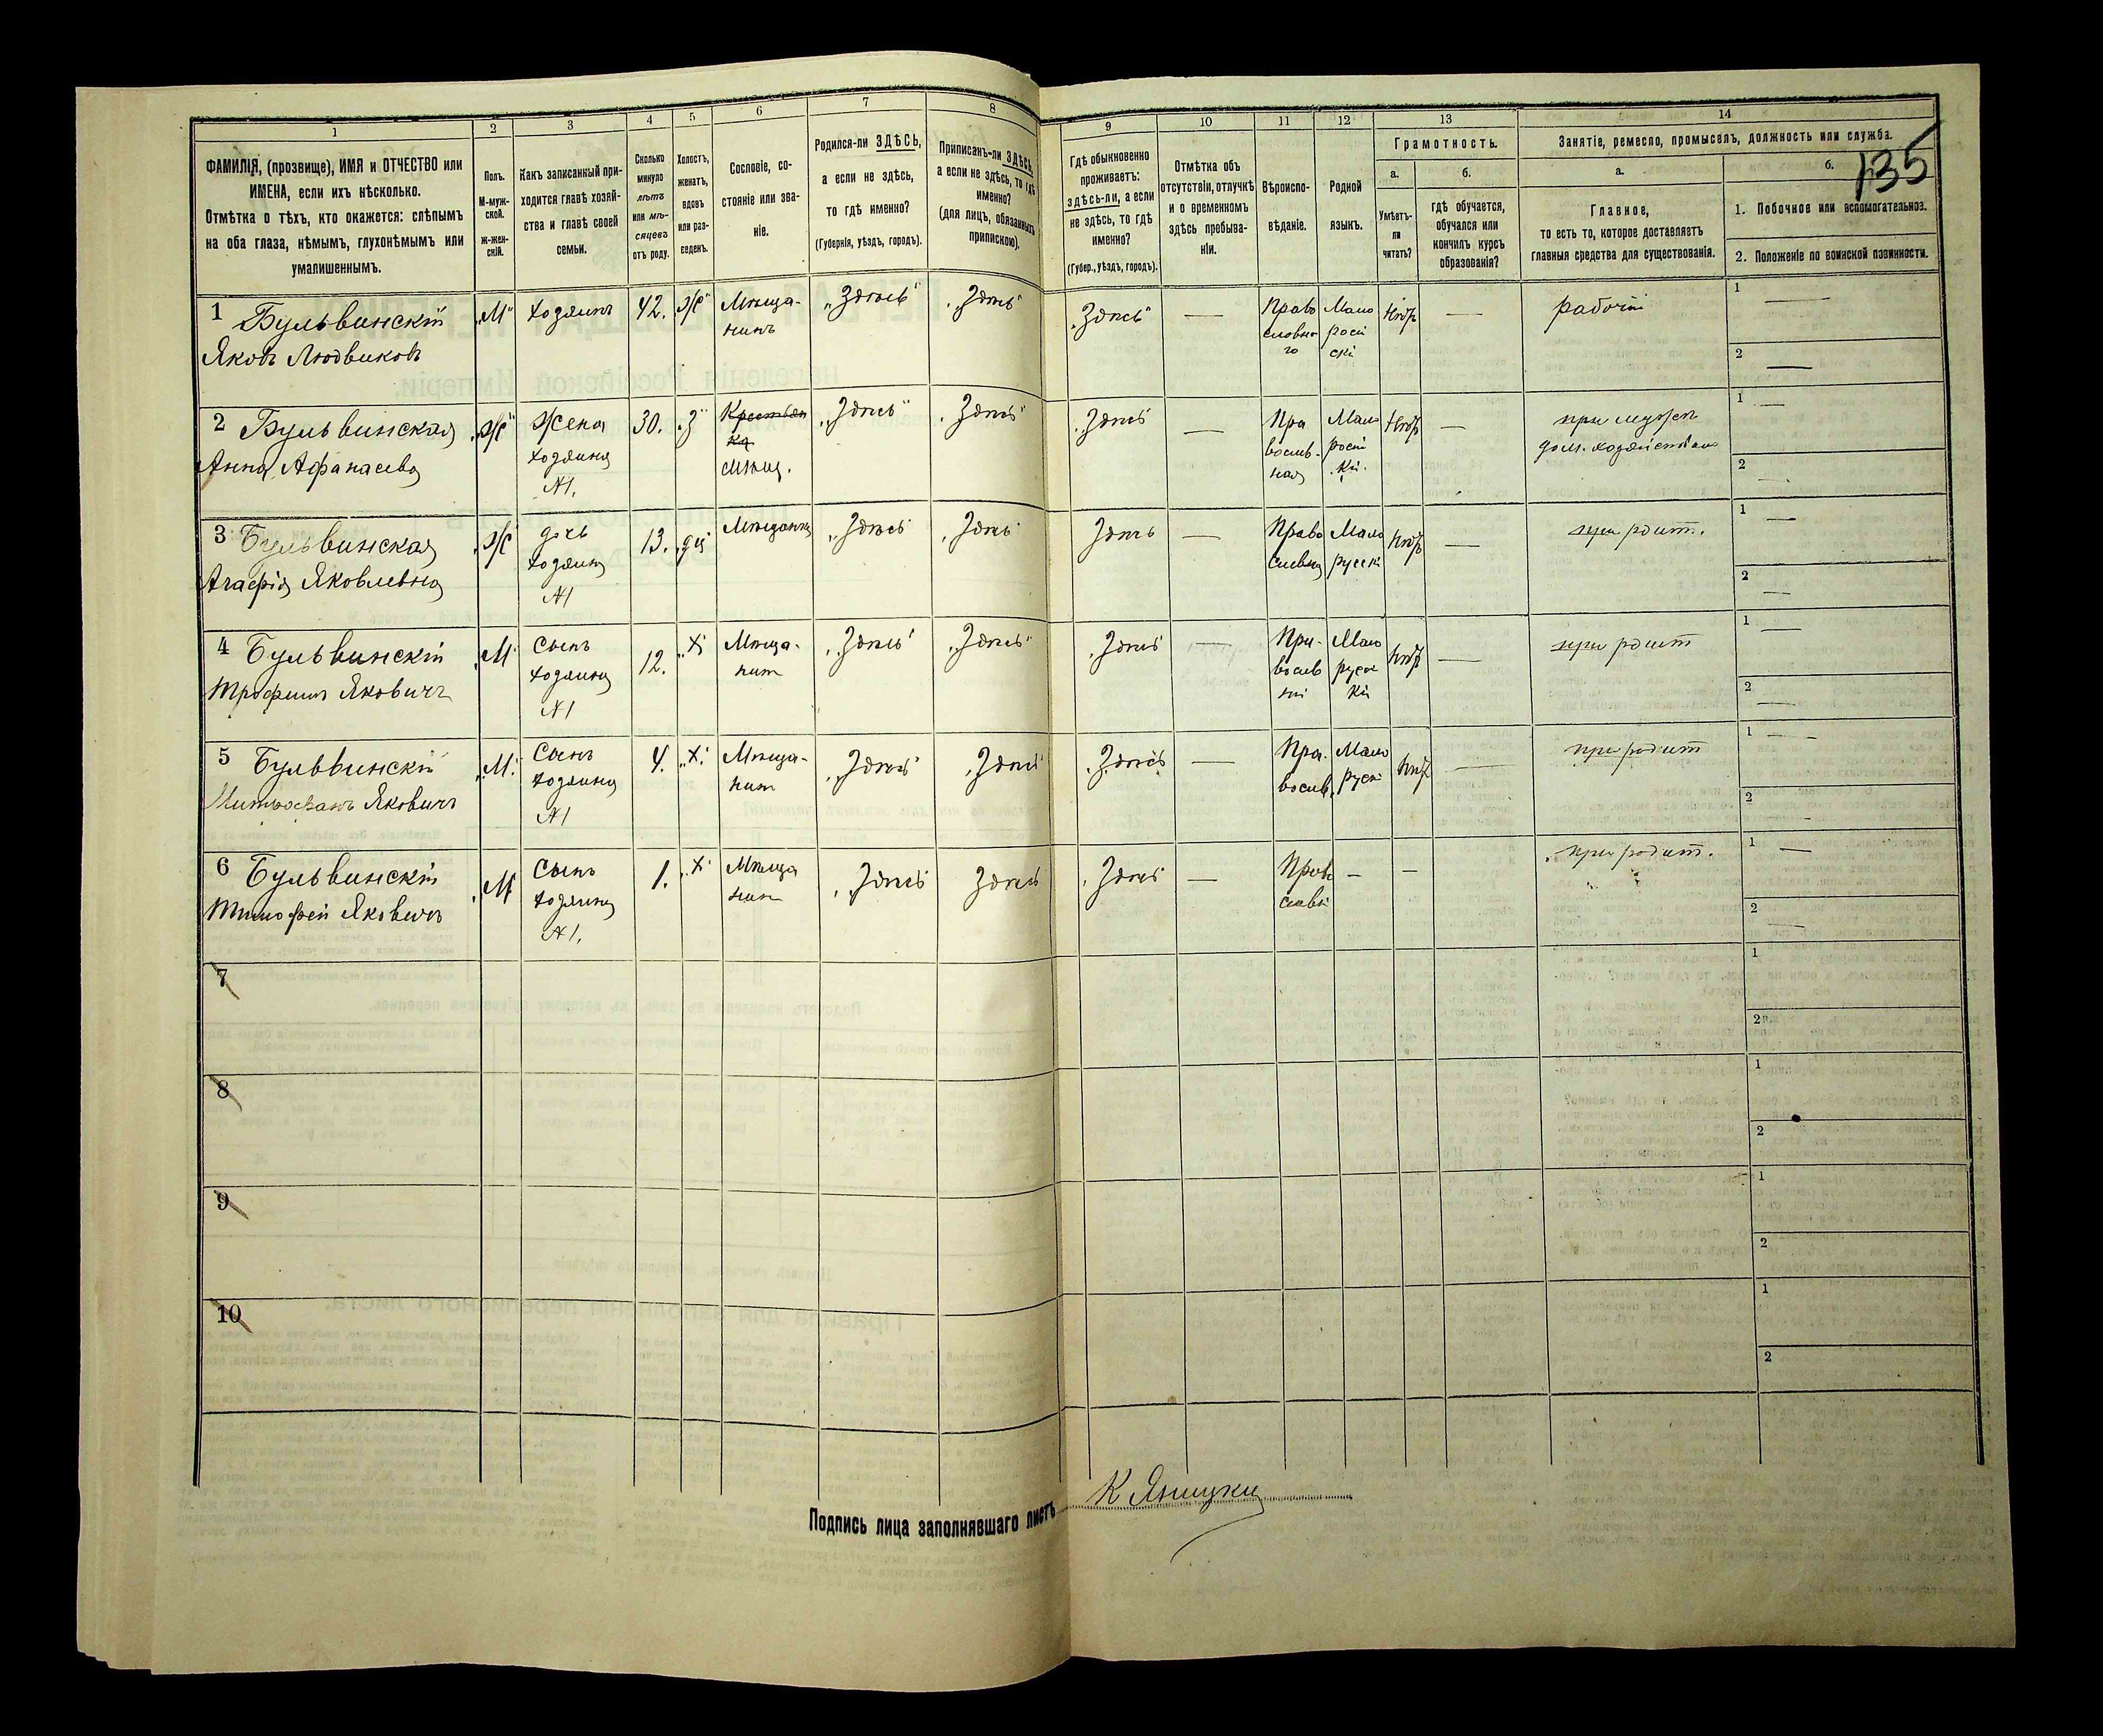 135
1 2 3 4 5 6 7 8 9 10 11 12 13 14
ФАМИЛІЯ, (прозвище), ИМЯ и ОТЧЕСТВО или
ИМЕНА, если ихъ нѣсколько.
Отмѣтка о тѣхъ, кто окажется: слѣпымъ
на оба глаза, нѣмымъ, глухонѣмымъ или
умалишеннымъ.
Полъ.
М-муж-
ской.
Ж-жен-
скій.
Какъ записанный при-
ходится главѣ хозяй-
ства и главѣ своей
семьи.
Сколько
минуло
лѣтъ
или мѣ-
сяцевъ
отъ роду.
Холостъ,
женатъ,
вдовъ
или раз-
веденъ.
Сословіе, со-
стояніе или зва-
ніе.
Родился-ли ЗДѢСЬ,
а если не здѣсь,
то гдѣ именно?
(Губернія, уѣздъ, городъ).
Приписанъ-ли ЗДѢСЬ,
а если не здѣсь, то гдѣ
именно?
(для лицъ, обязанныхъ
припискою).
Гдѣ обыкновенно
проживаетъ:
здѣсь-ли, а если
не здѣсь, то гдѣ
именно?
(Губер., уѣздъ, городъ).
Отмѣтка объ
отсутствіи, отлучкѣ
и о временномъ
здѣсь пребыва-
ніи.
Вѣроиспо-
вѣданіе.
Родной
языкъ.
Грамотность.
а.
Умѣетъ-
ли
читать?
б.
гдѣ обучается,
обучался или
кончилъ курсъ
образованія?
Занятіе, ремесло, промыселъ, должность или служба.
а.
Главное,
то есть то, которое доставляетъ
главныя средства для существованія.
б.
1. Побочное или вспомогательное.
2. Положеніе по воинской повинности.
1 Бульвинскій
Яковъ Людвиковъ
„М"
хозяинъ
42.
„ж"
Мѣща-
нинъ
„Здѣсь"
„Здѣсь"
„Здѣсь"
—
Право
славно
го
Мало
росій
скі
Нѣтъ
—
рабочій
1 —
2 —
2 Бульвинская
Анна Афанасева
„ж"
Жена
хозяина
№1.
30.
„З"
Крестьян
ка
мѣщ.
„Здѣсь"
„Здѣсь"
„Здѣсь
—
Пра
вослав-
ная
Мало
росій
кі.
Нѣтъ
—
при мужѣ
дом. хозяйством
1 —
2 —
3 Бульвинская
Агафія Яковлевна
„ж
дочь
хозяина
№1
13.
„дѣ"
Мѣщанка
„Здѣсь
„Здѣсь
Здѣсь
—
Право
славна
Мало
рускі
Нѣтъ
—
при родит.
1 —
2 —
4 Бульвинскій
Трофимъ Яковичъ
„М
Сынъ
хозяина
№1
12.
„х
Мѣща-
нин
„Здѣсь"
„Здѣсь"
„Здѣсь
—
Пра-
вослав
ні
Мало
рус
кі
Нѣтъ
—
при родит
1 —
2 —
5 Бульвинскій
Митрофанъ Яковичъ
„М.
Сынъ
хозяина
№1
4.
„х.
Мѣща-
нин
„Здѣсь
„Здѣсь
„Здѣсь
—
Пра-
вослав.
Мало
рускі
Нѣтъ
—
при родит
1 —
2 —
6 Бульвинскій
Тимофей Яковичъ
„М
Сынъ
хозяина
№1.
1.
„х
Мѣща
нин
„Здѣсь
Здѣсь
„Здѣсь
—
Право
славн
—
—
при родит.
1 —
2 —
7
1
2
8
1
2
9
1
2
10
1
2
Подпись лица заполнявшаго листъ К Яницки